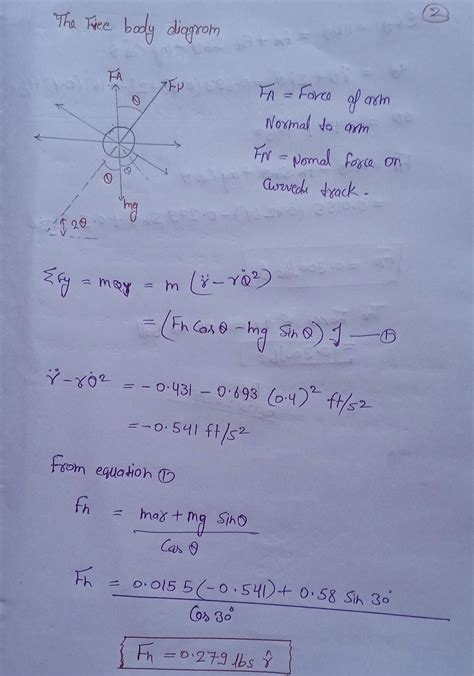 2
The Free body diagrom
FA
FN
θ
θ
θ
mg
2θ
FA = Force of arm
Normal to arm
FN = nomal force on
Curvede track.
ΣFy = mar = m (r̈ - rθ̇²)
= (Fn Cos θ - mg Sin θ) J — ①
r̈ - rθ̇² = -0.431 - 0.693 (0.4)² ft/s²
= -0.541 ft/s²
From equation ①
Fn = mar + mg Sinθ / Cas θ
Fn = 0.0155 (-0.541) + 0.58 Sin 30° / Cos 30°
Fn = 0.279 lbs r̂